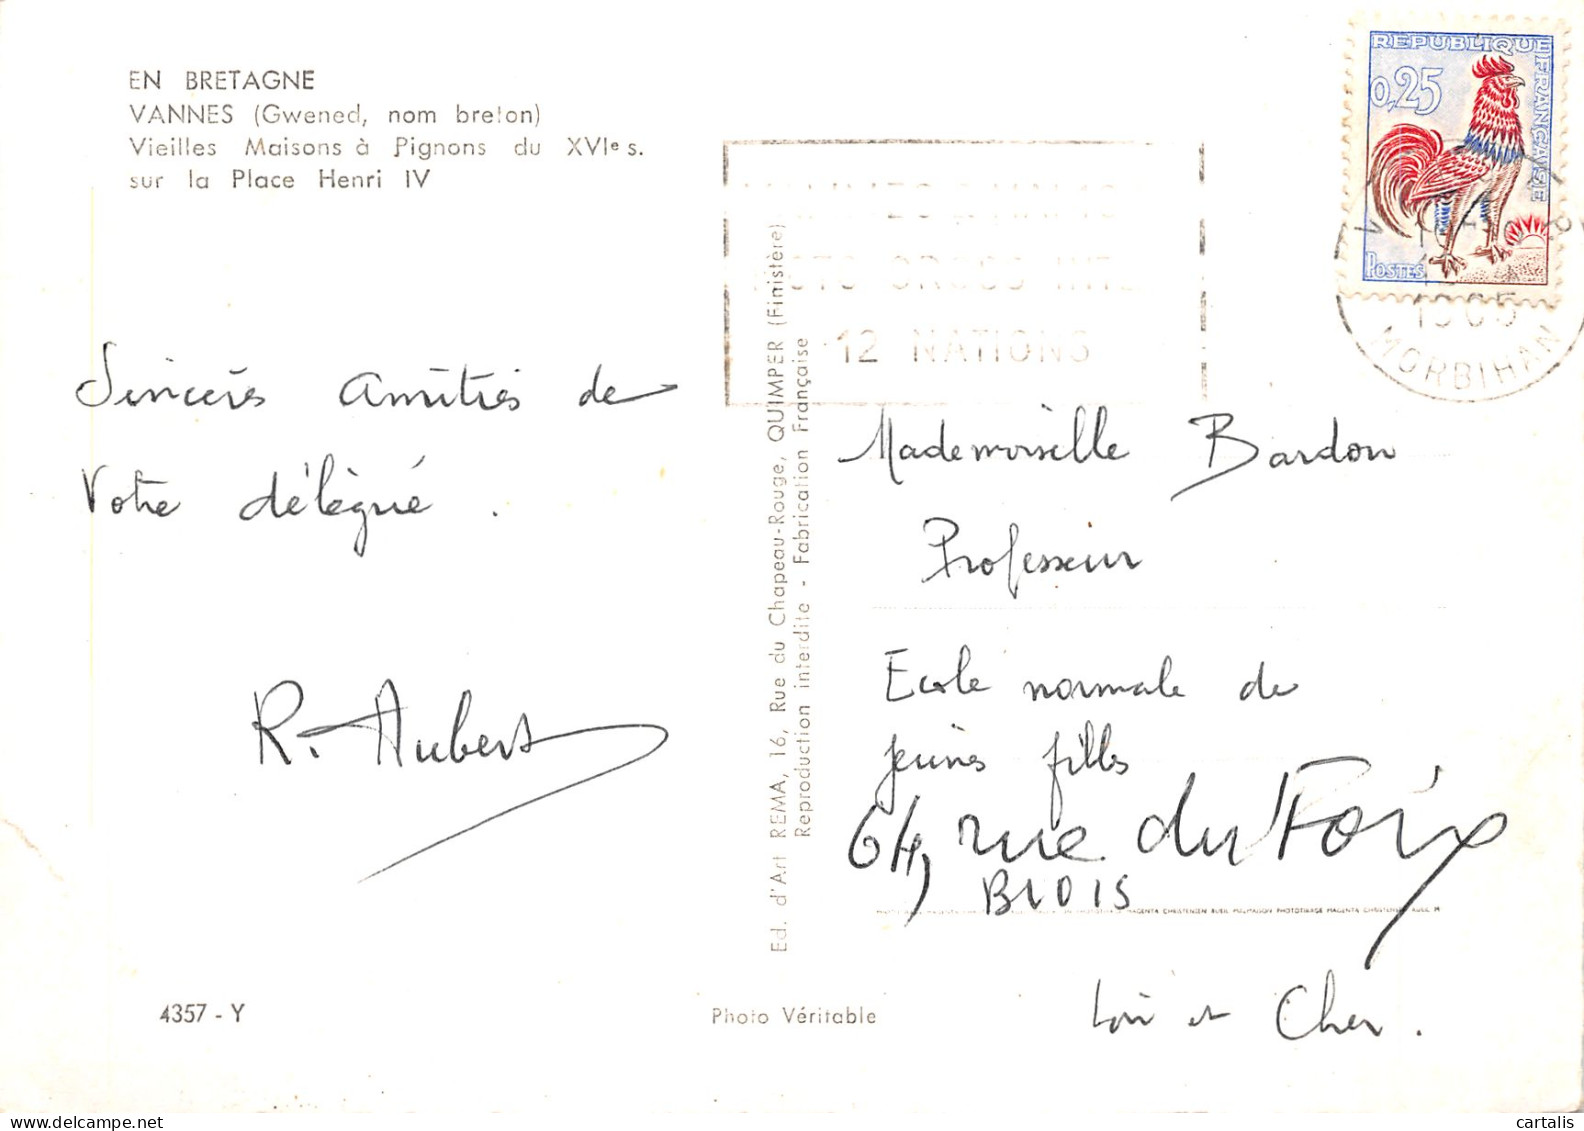 EN BRETAGNE
VANNES (Gwened, nom breton)
Vieilles Maisons à Pignons du XVIe s.
sur la Place Henri IV
REPUBLIQUE FRANÇAISE
0,25
POSTES
12 NATIONS
1965
MORBIHAN
Sincères amitiés de
Votre délégué.
R. Aubert
Ed. d'Art REMA, 16, Rue du Chapeau-Rouge, QUIMPER (Finistère)
Reproduction interdite - Fabrication Française
Mademoiselle Bardon
Professeur
Ecole normale de
jeunes filles
64, rue du Foix
BLOIS
Loir et Cher.
4357 - Y
Photo Véritable
cartalis